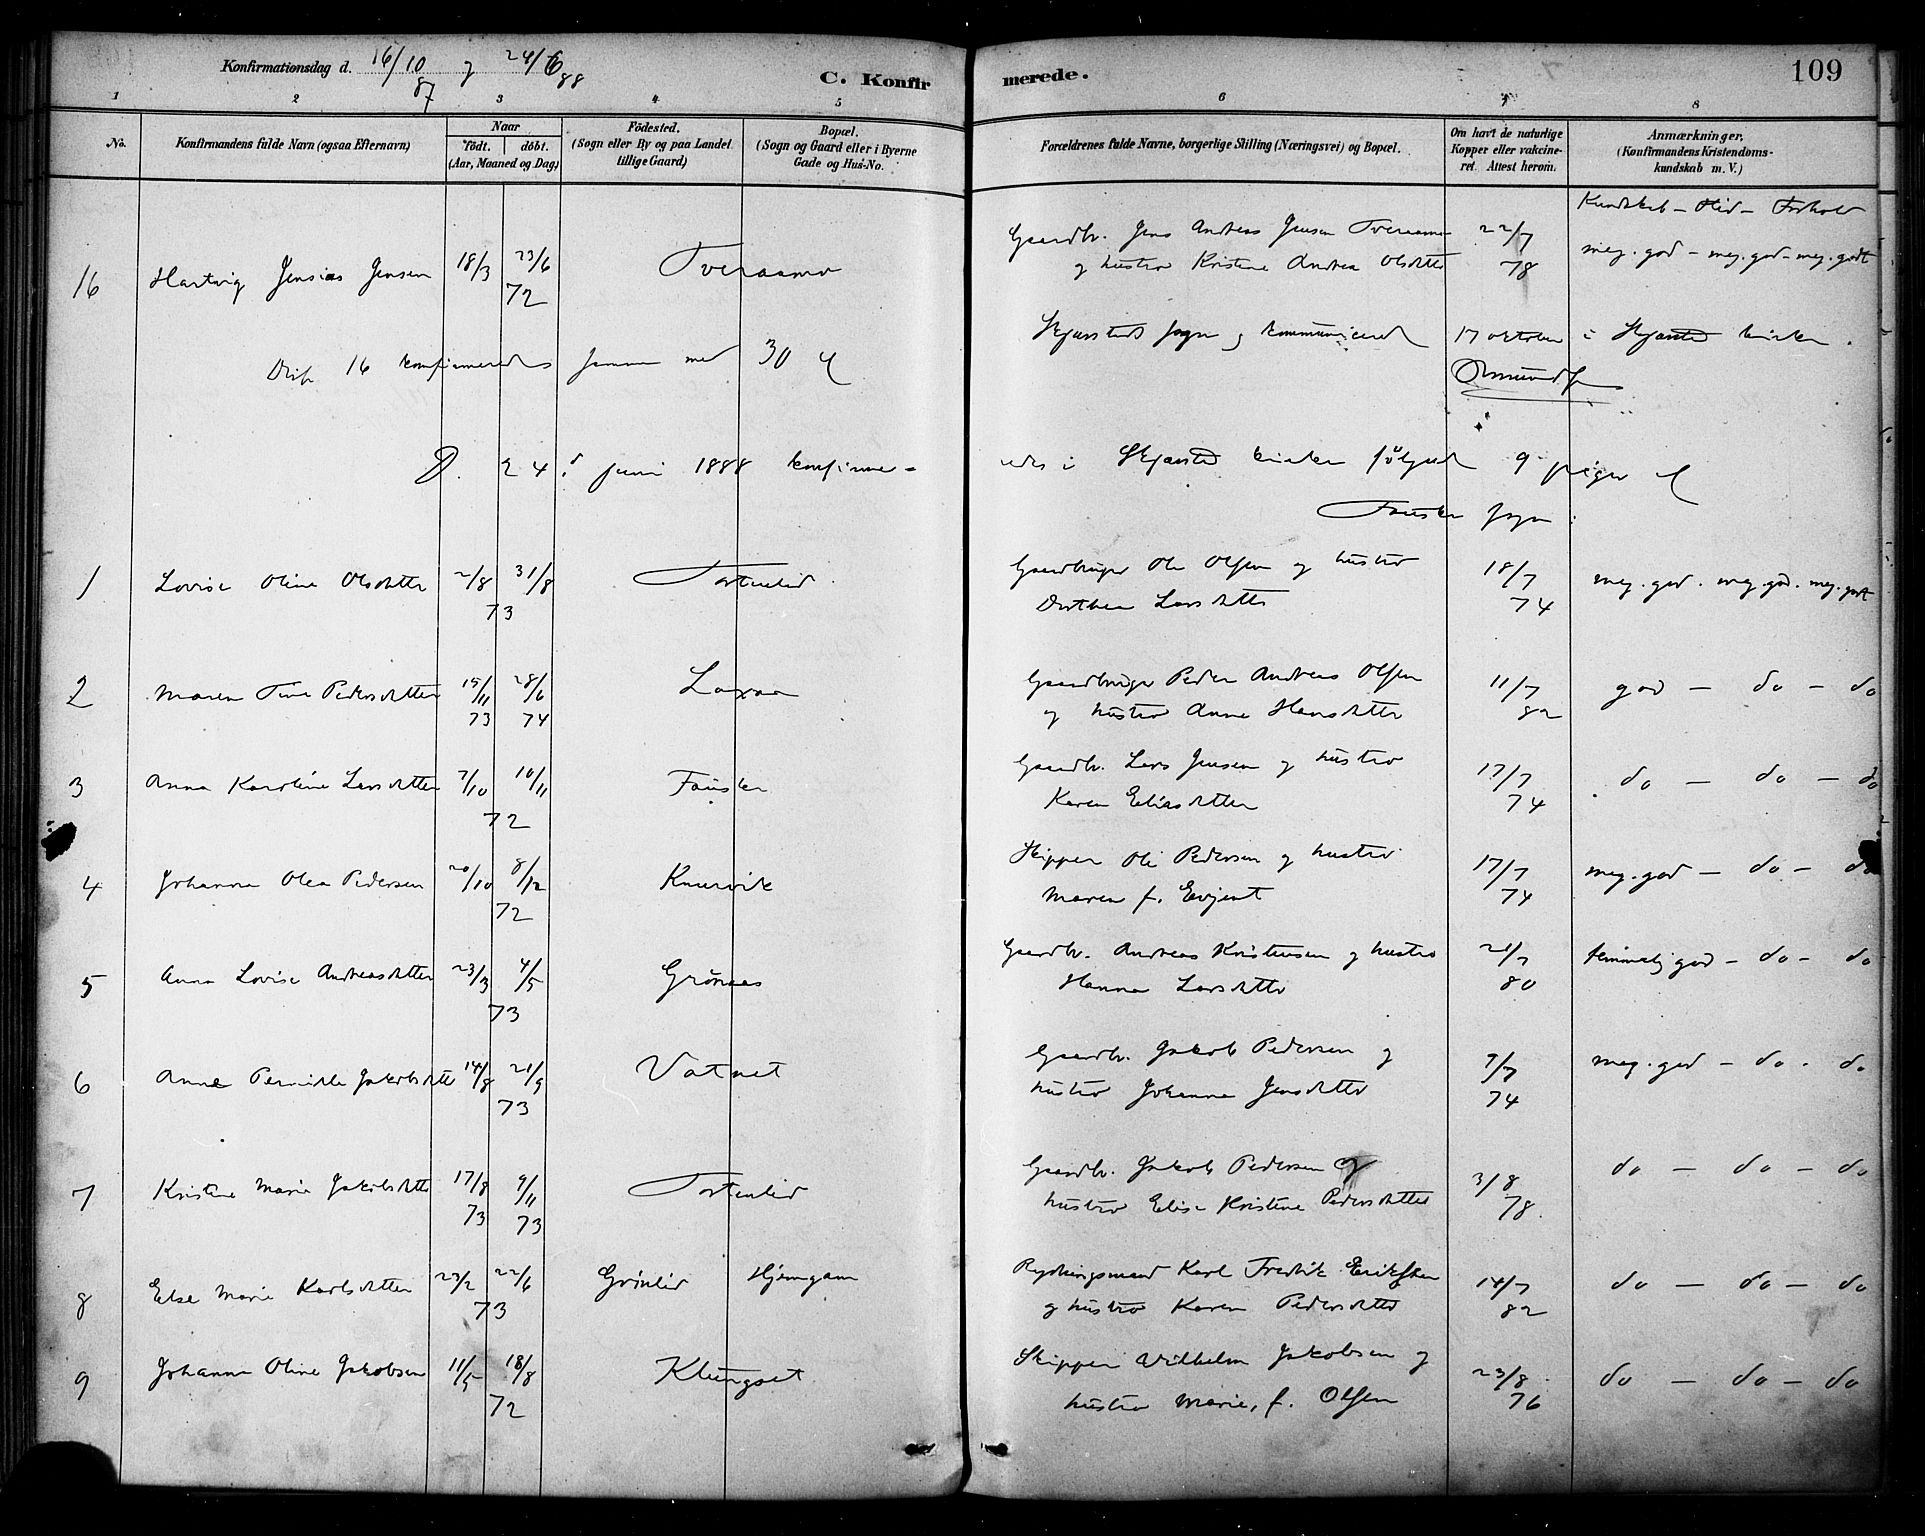 Konfirmationsdag d. 16/10 87 og 24/6 88
C. Konfirmerede.
109
1 2 3 4 5 6 7 8
No.
Konfirmandens fulde Navn (ogsaa Efternavn)
Naar
født. døbt.
(Aar, Maaned og Dag)
Födested.
(Sogn eller By og paa Landet
tillige Gaard)
Bopæl.
(Sogn og Gaard eller i Byerne
Gade og Hus-No.
Forældrenes fulde Navne, borgerlige Stilling (Næringsvei) og Bopæl.
Om havt de naturlige
Kopper eller vakcine-
ret. Attest herom.
Anmærkninger,
(Konfirmandens Kristendoms-
kundskab m. V.)
Kundskab – Flid – Forhold
16 Hartvig Jensias Jensen 18/3 23/6 72 Tveraamo
Gaardbr. Jens Andreas Jensen Tveraamo
og hustro Kristine Andrea Olsdatter
22/7 78
meg. god – meg. god – meg. godt
16 konfirmeredes samme med 30 af
Skjerstad sogn og kommunicered 17 oktober i Skjerstad kirke.
D. 24d juni 1888 konfirmer=
edes i Skjerstad kirke følgende 9 piger af
Fauske sogn:
1 Lovise Oline Olsdatter 2/8 31/8 73 Tortenlid
Gaardbruger Ole Olsen og hustro
Dorthea Larsdatter
18/7 74
meg. god. meg. god. meg. godt
2 Maren Tine Pedersdatter 15/11 73 28/6 74 Laxaa
Gaardbruger Peder Andreas Olsen
og hustro Anne Hansdatter
11/7 82
god – do – do
3 Anna Karoline Larsdatter 7/10 10/11 72 Fauske
Gaardbr. Lars Jensen og hustro
Karen Eliasdatter
17/7 74
do – do – do
4 Johanna Olea Pedersen 20/10 8/12 72 Knurvik
Skipper Ole Pedersen og hustro
Maren f. Evjent
17/7 74
meg. god – do – do
5 Anna Lovise Andreasdatter 23/3 4/5 73 Grønaas
Gaardbr. Andreas Kristensen og hustro
Hanna Larsdatter
21/7 80
temmelig god – do – do
6 Anne Pernille Jakobsdatter 14/8 21/9 73 Vatnet
Gaardbr. Jakob Pedersen og
hustro Johanna Jensdatter
9/7 74
meg. god – do – do
7 Kristine Marie Jakobsdatter 17/8 73 9/11 73 Tortenlid
Gaardbr. Jakob Pedersen og
hustro Elise Kristine Pedersdatter
3/8 78
do – do – do
8 Else Marie Karlsdatter 23/2 22/6 73 Grønlid Hjemgam
Rydningsmand Karl Fredrik Eriksen
og hustro Karen Pedersdatter
14/7 82
do – do – do
9 Johanna Oline Jakobsen 11/5 18/8 72 Klungset
Skipper Vilhelm Jakobsen og
hustro Marie, f. Olsen
23/8 76
do – do – do